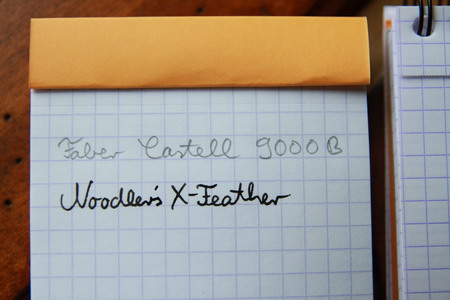 Faber Castell 9000 B
Noodler's X-Feather